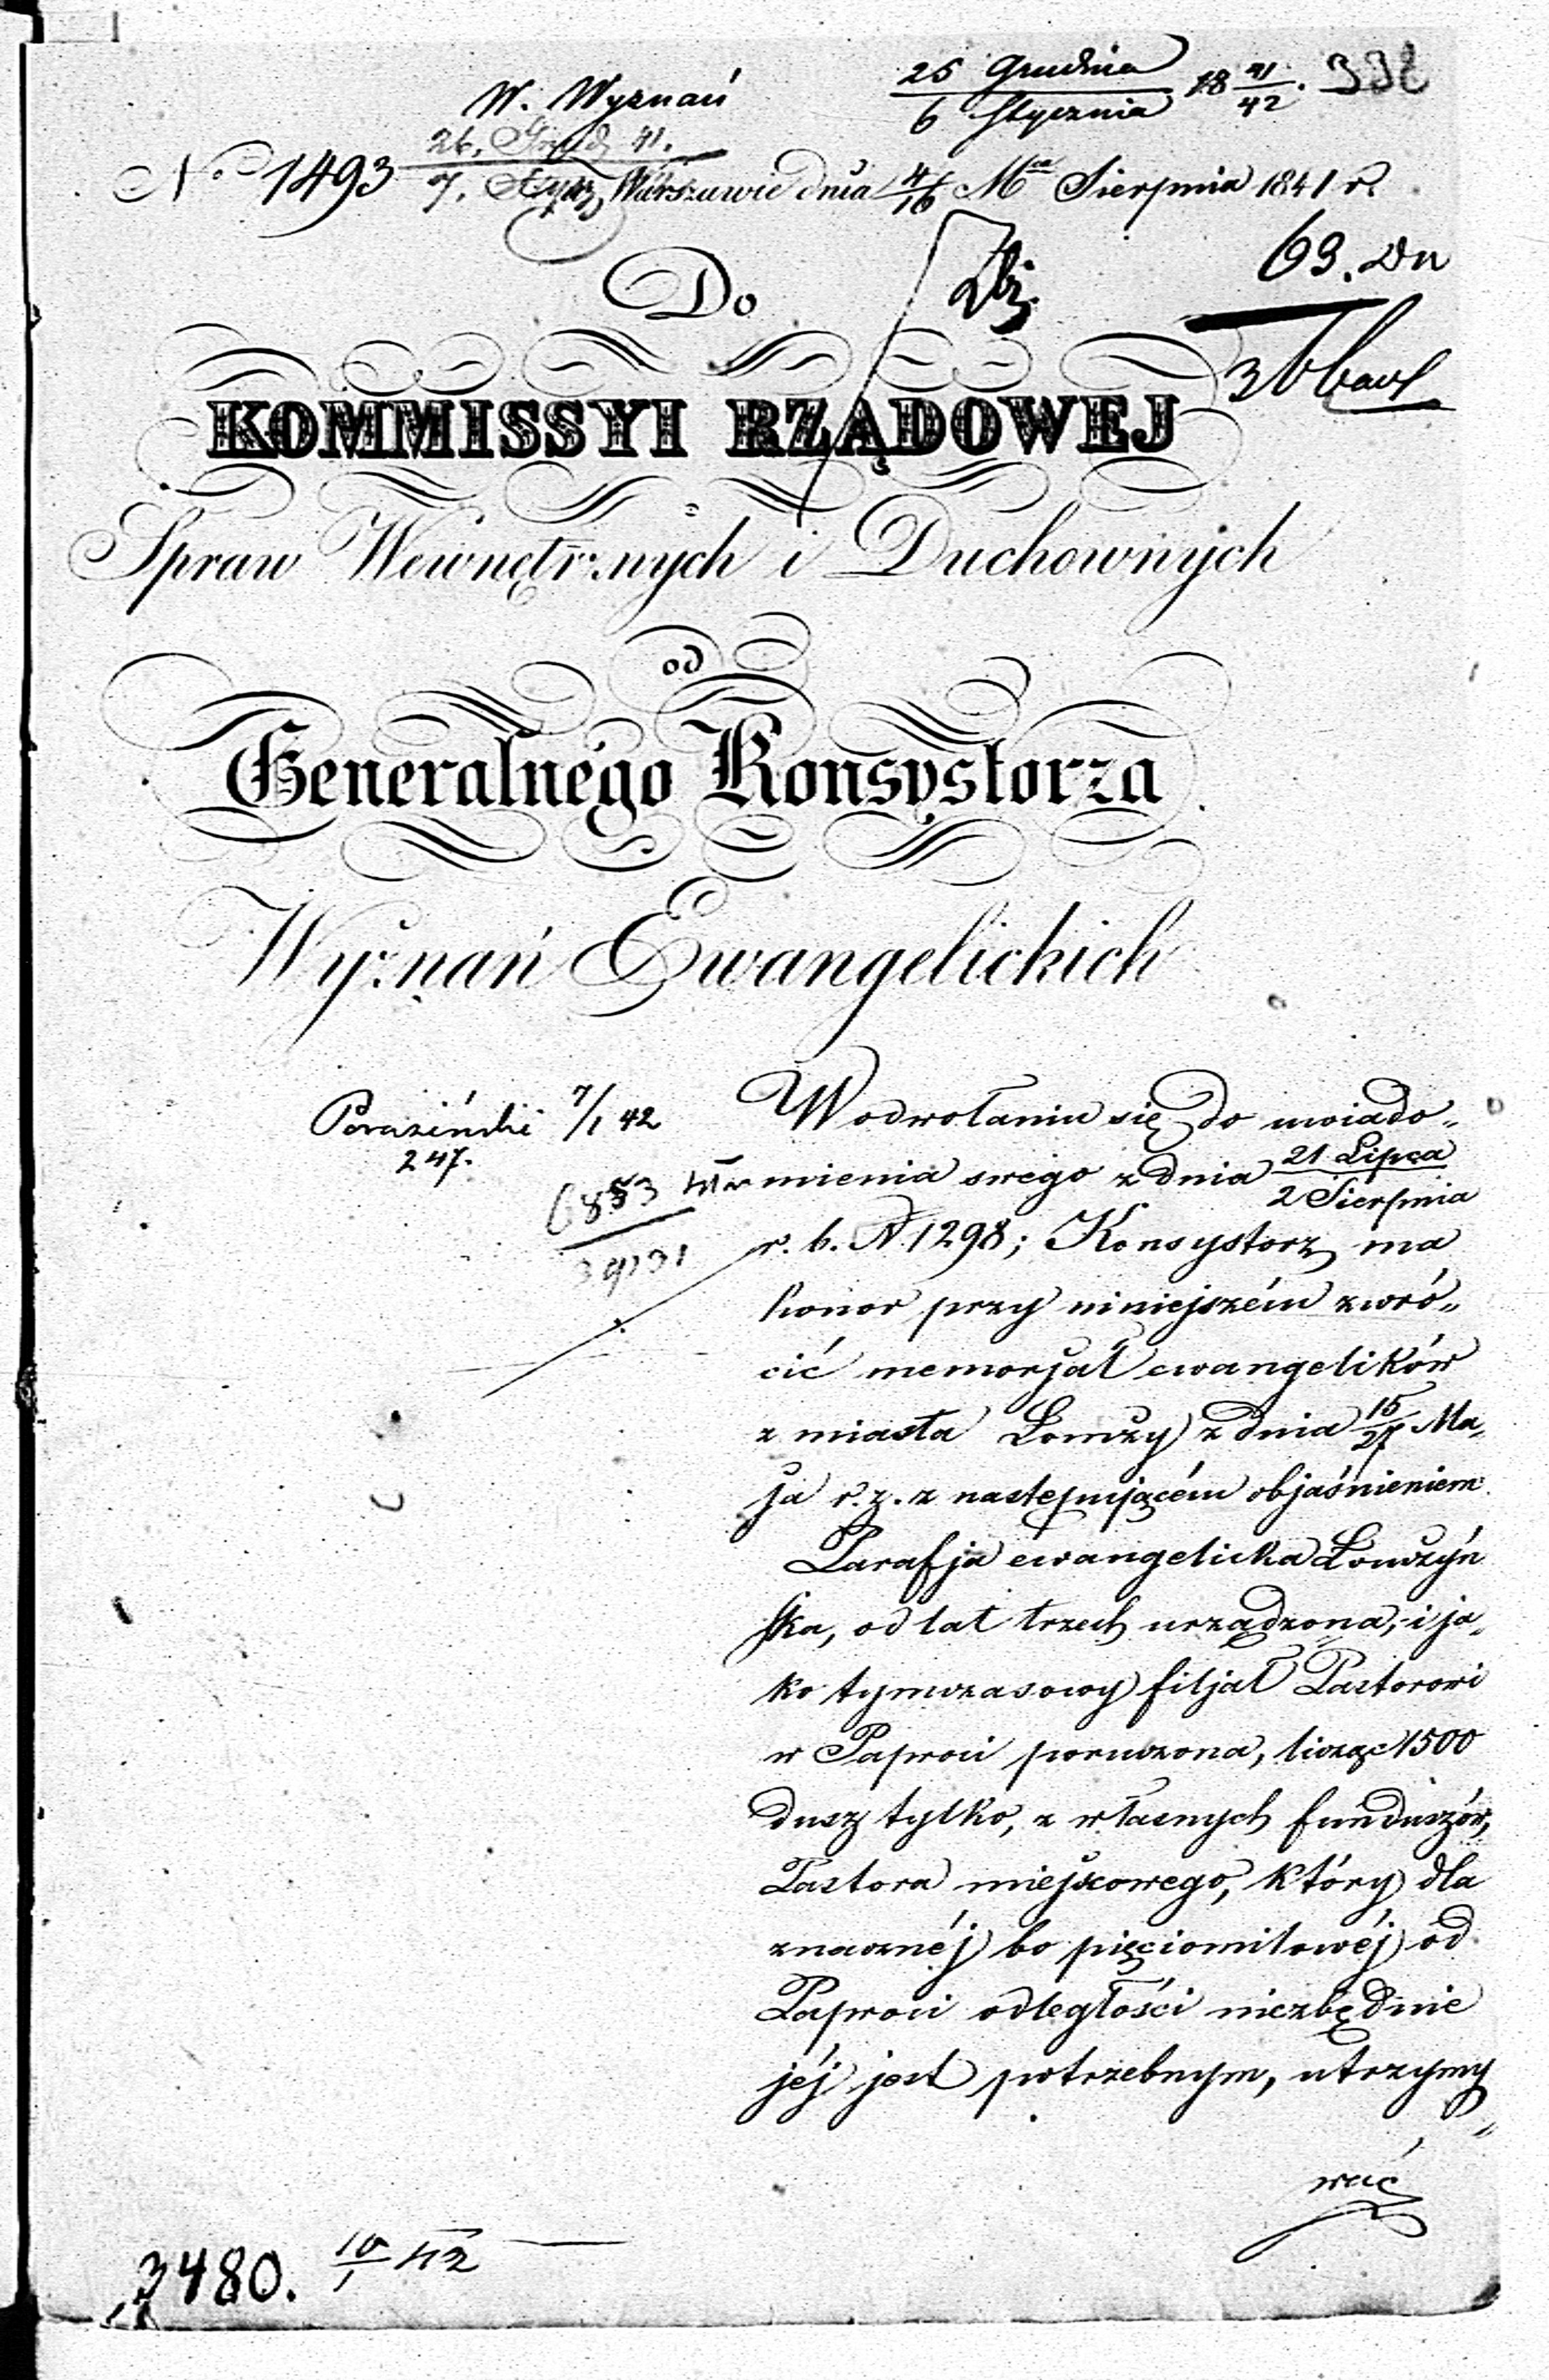 W. Wyznań
25 Grudnia
6 Stycznia 18 41/42. 338
26. Grud. 41.
7. Stycz.
No 1493 Warszawie dnia 4/16 Mca Sierpnia 1841 r.
69. Dn
Do
KOMMISSYI RZĄDOWEJ
Spraw Wewnętrznych i Duchownych
od
Generalnégo Konsystorza
Wyznań Ewangelickich
Paraziński 7/1 42
247.
W odwołaniu się do uwiado„
mienia swego z dnia 21 Lipca
2 Sierpnia
6853
r. b. N. 1298; Konsystorz ma
honor przy niniejszém zwró„
cić memorjał ewangelików
z miasta Łomży z dnia 15/27 Ma„
ja r. z. z następującém objaśnieniem.
Parafja ewangelicka Łomżyń
ska, od lat trzech urządzona, i ja„
ko tymczasowy filjał Pastorowi
w Paproci poruczona, licząc 1500
dusz tylko, z własnych funduszów,
Pastora miejscowego, który dla
znacznéj bo pięciomilowéj od
Paproci odległości niezbędnie
jéj jest potrzebnym, utrzymy„
wać
3480. 10/1 42